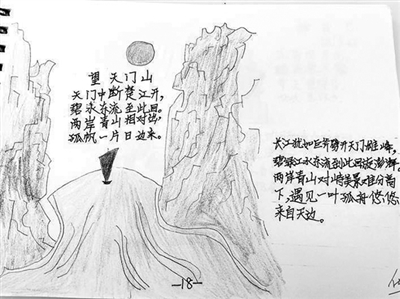 望天门山
天门中断楚江开,
碧水东流至此回。
两岸青山相对出,
孤帆一片日边来。
长江犹如巨斧劈开天门雄峰,
碧绿江水东流到此回旋澎湃。
两岸青山对峙美景难分高
下,遇见一叶孤舟悠悠
来自天边。
—18—